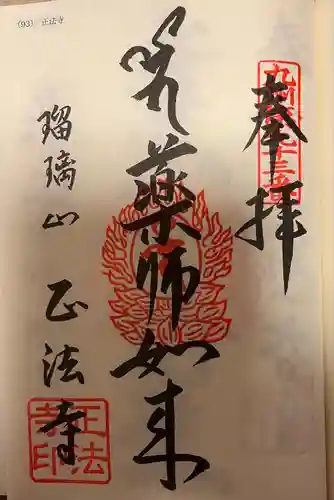 (93) 正法寺
奉拝
九州第九十三番
薬師如来
瑠璃山 正法寺
正法寺印